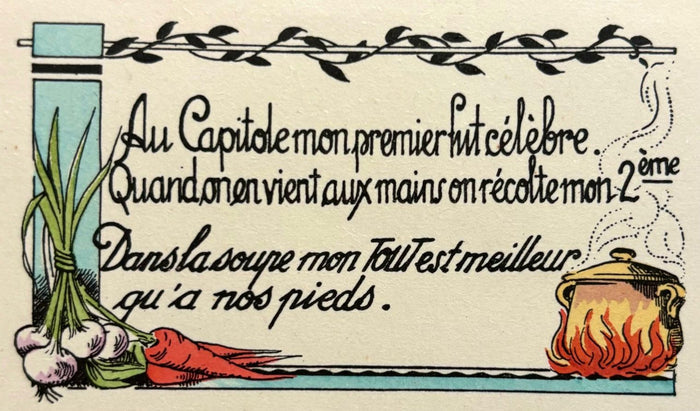 Au Capitole mon premier fut célèbre.
Quand on en vient aux mains on récolte mon 2ème
Dans la soupe mon TOUT est meilleur
qu'a nos pieds.